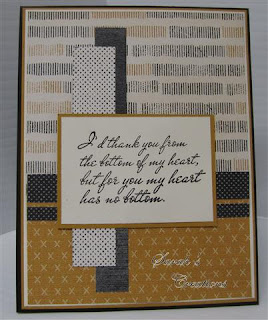 I'd thank you from
the bottom of my heart,
but for you my heart
has no bottom.
Sarah's
Creations